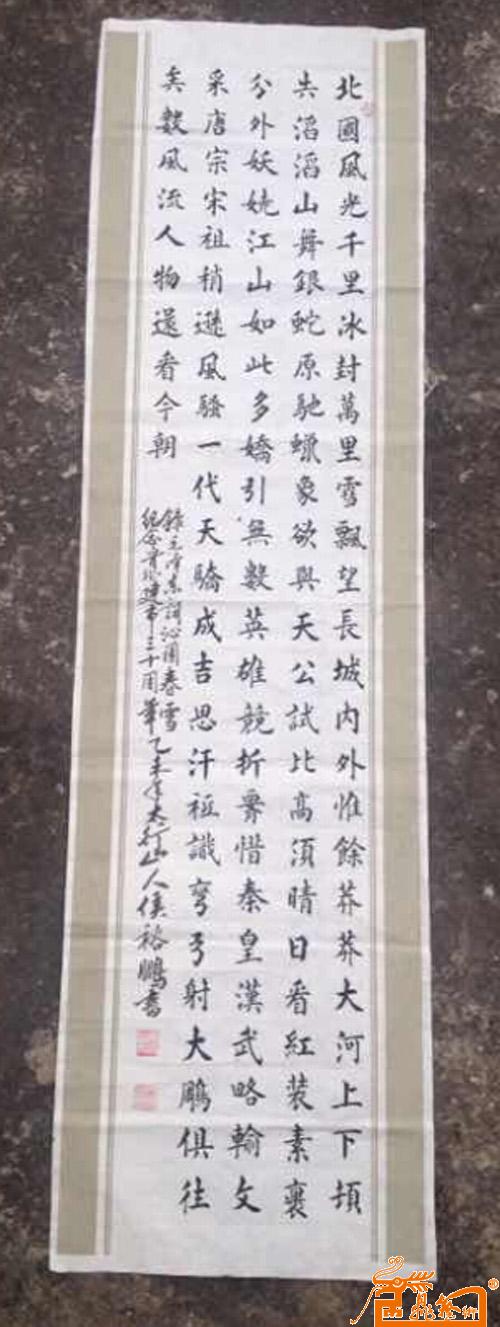 北國風光千里冰封萬里雪飄望長城内外惟餘莽莽大河上下頓
失滔滔山舞銀蛇原馳蠟象欲與天公試比高須晴日看紅装素裹
分外妖嬈江山如此多嬌引無數英雄競折要惜秦皇漢武略輸文
采唐宗宋祖稍遜風騷一代天驕成吉思汗祗識彎弓射大鵰俱往
矣數風流人物還看今朝
錄毛澤東詞沁園春雪
紀念晋城建市三十周年乙未年太行山人侯裕鵬書